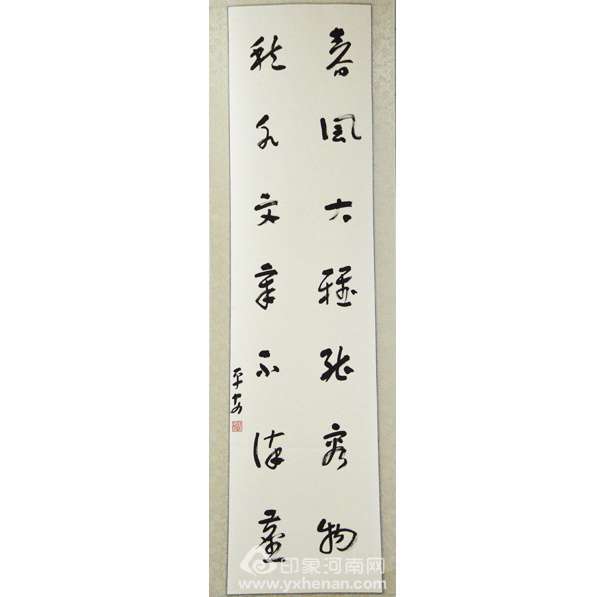 春風大雅能容物
秋水文章不染塵
印象河南网
www.yxhenan.com